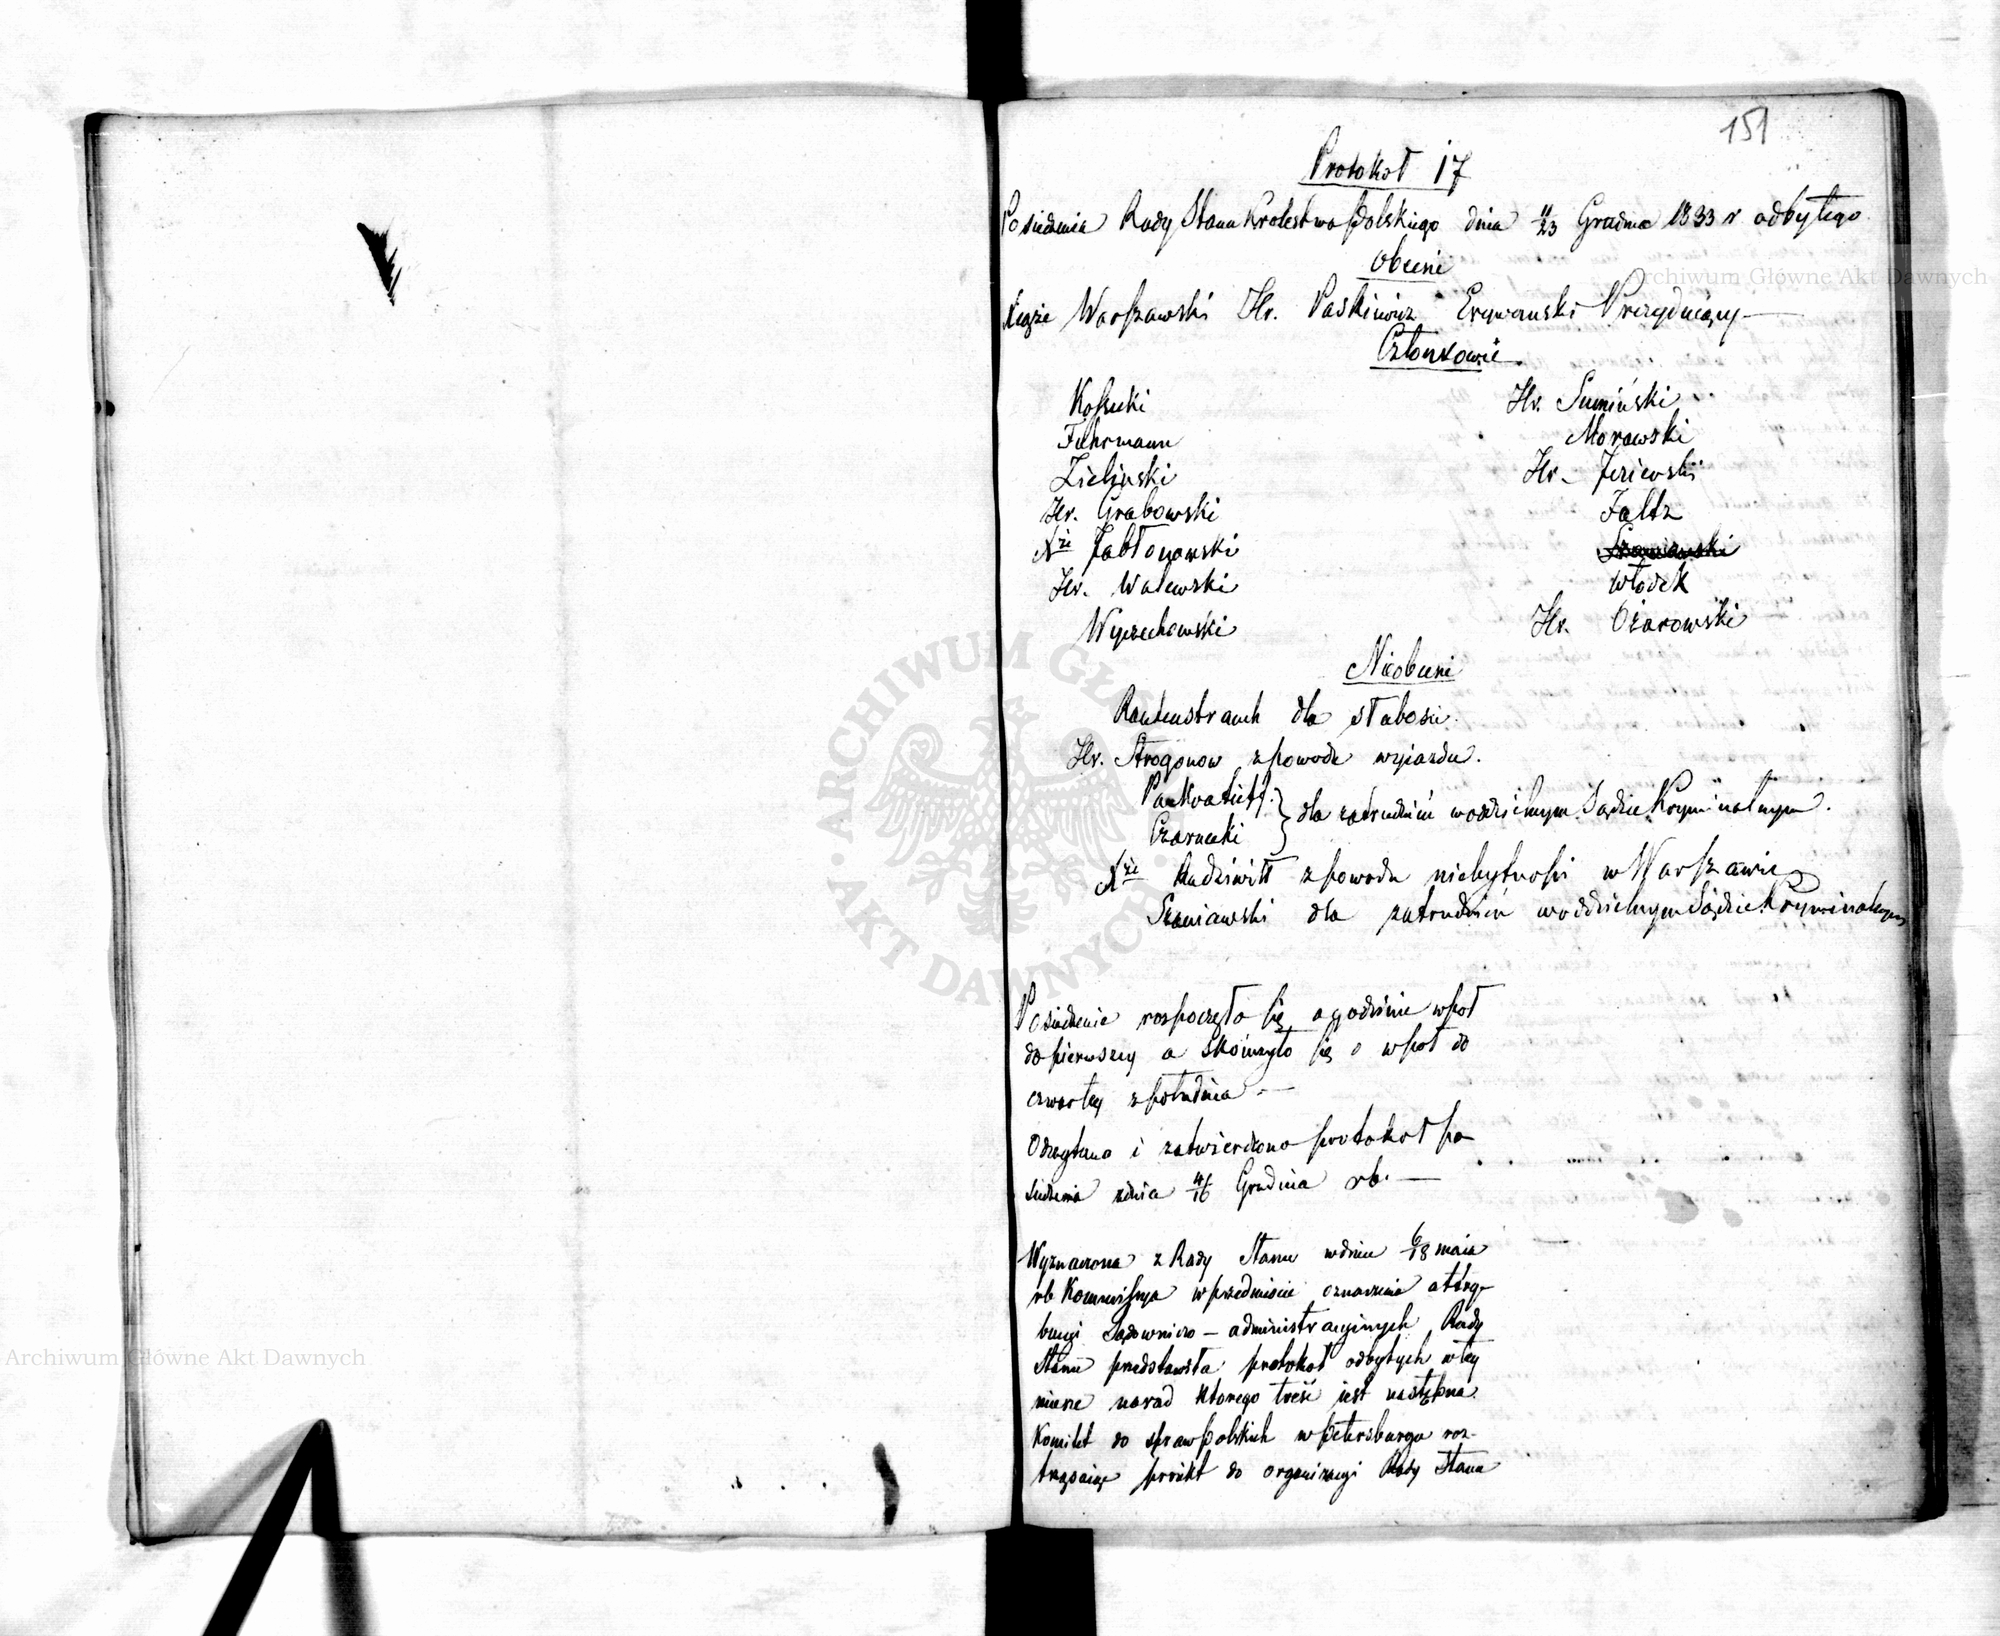 151
Protokół 17
Posiedzenia Rady Stanu Królestwa Polskiego dnia 11/23 Grudnia 1833 r. odbytego.
Obecni
Xiąże Warszawski Hr. Paskiewicz Erywański Prezyduiący —
Członkowie
Kossecki Hr. Sumiński
Fuhrmann Morawski
Zieliński Hr. Jezierski
Hr. Grabowski Faltz
Xże Jabłonowski Szaniawski
Hr. Walewski Włodek
Wyczechowski Hr. Ożarowski
Nieobecni
Rautenstrauch dla słabości.
Hr. Strogonow z powodu wyjazdu.
Pankratieff.
Czarnecki } dla zatrudnień w oddzielnym Sądzie Kryminalnym.
Xże Radziwiłł z powodu niebytności w Warszawie
Szaniawski dla zatrudnień w oddzielnym Sądzie Kryminalnym
Posiedzenie rozpoczęło się o godzinie wpoł
do pierwszey a skończyło się o wpoł do
czwartey z południa —
Odczytano i zatwierdzono protokoł po-
siedzenia zdnia 4/16 Grudnia rb. —
Wyznaczona z Rady Stanu wdniu 6/18 maia
rb Kommissya w przedmiocie oznaczenia attry-
bucyi Sądowniczo — administracyinych Rady
Stanu przedstawiła protokoł odbytych w tey
mierze narad którego treść iest następna.
Komitet do spraw Polskich w Petersburgu roz-
trząsaiąc proiekt do organizacyi Rady Stanu
Archiwum Główne Akt Dawnych
Archiwum Główne Akt Dawnych
ARCHIWUM GŁÓWNE AKT DAWNYCH